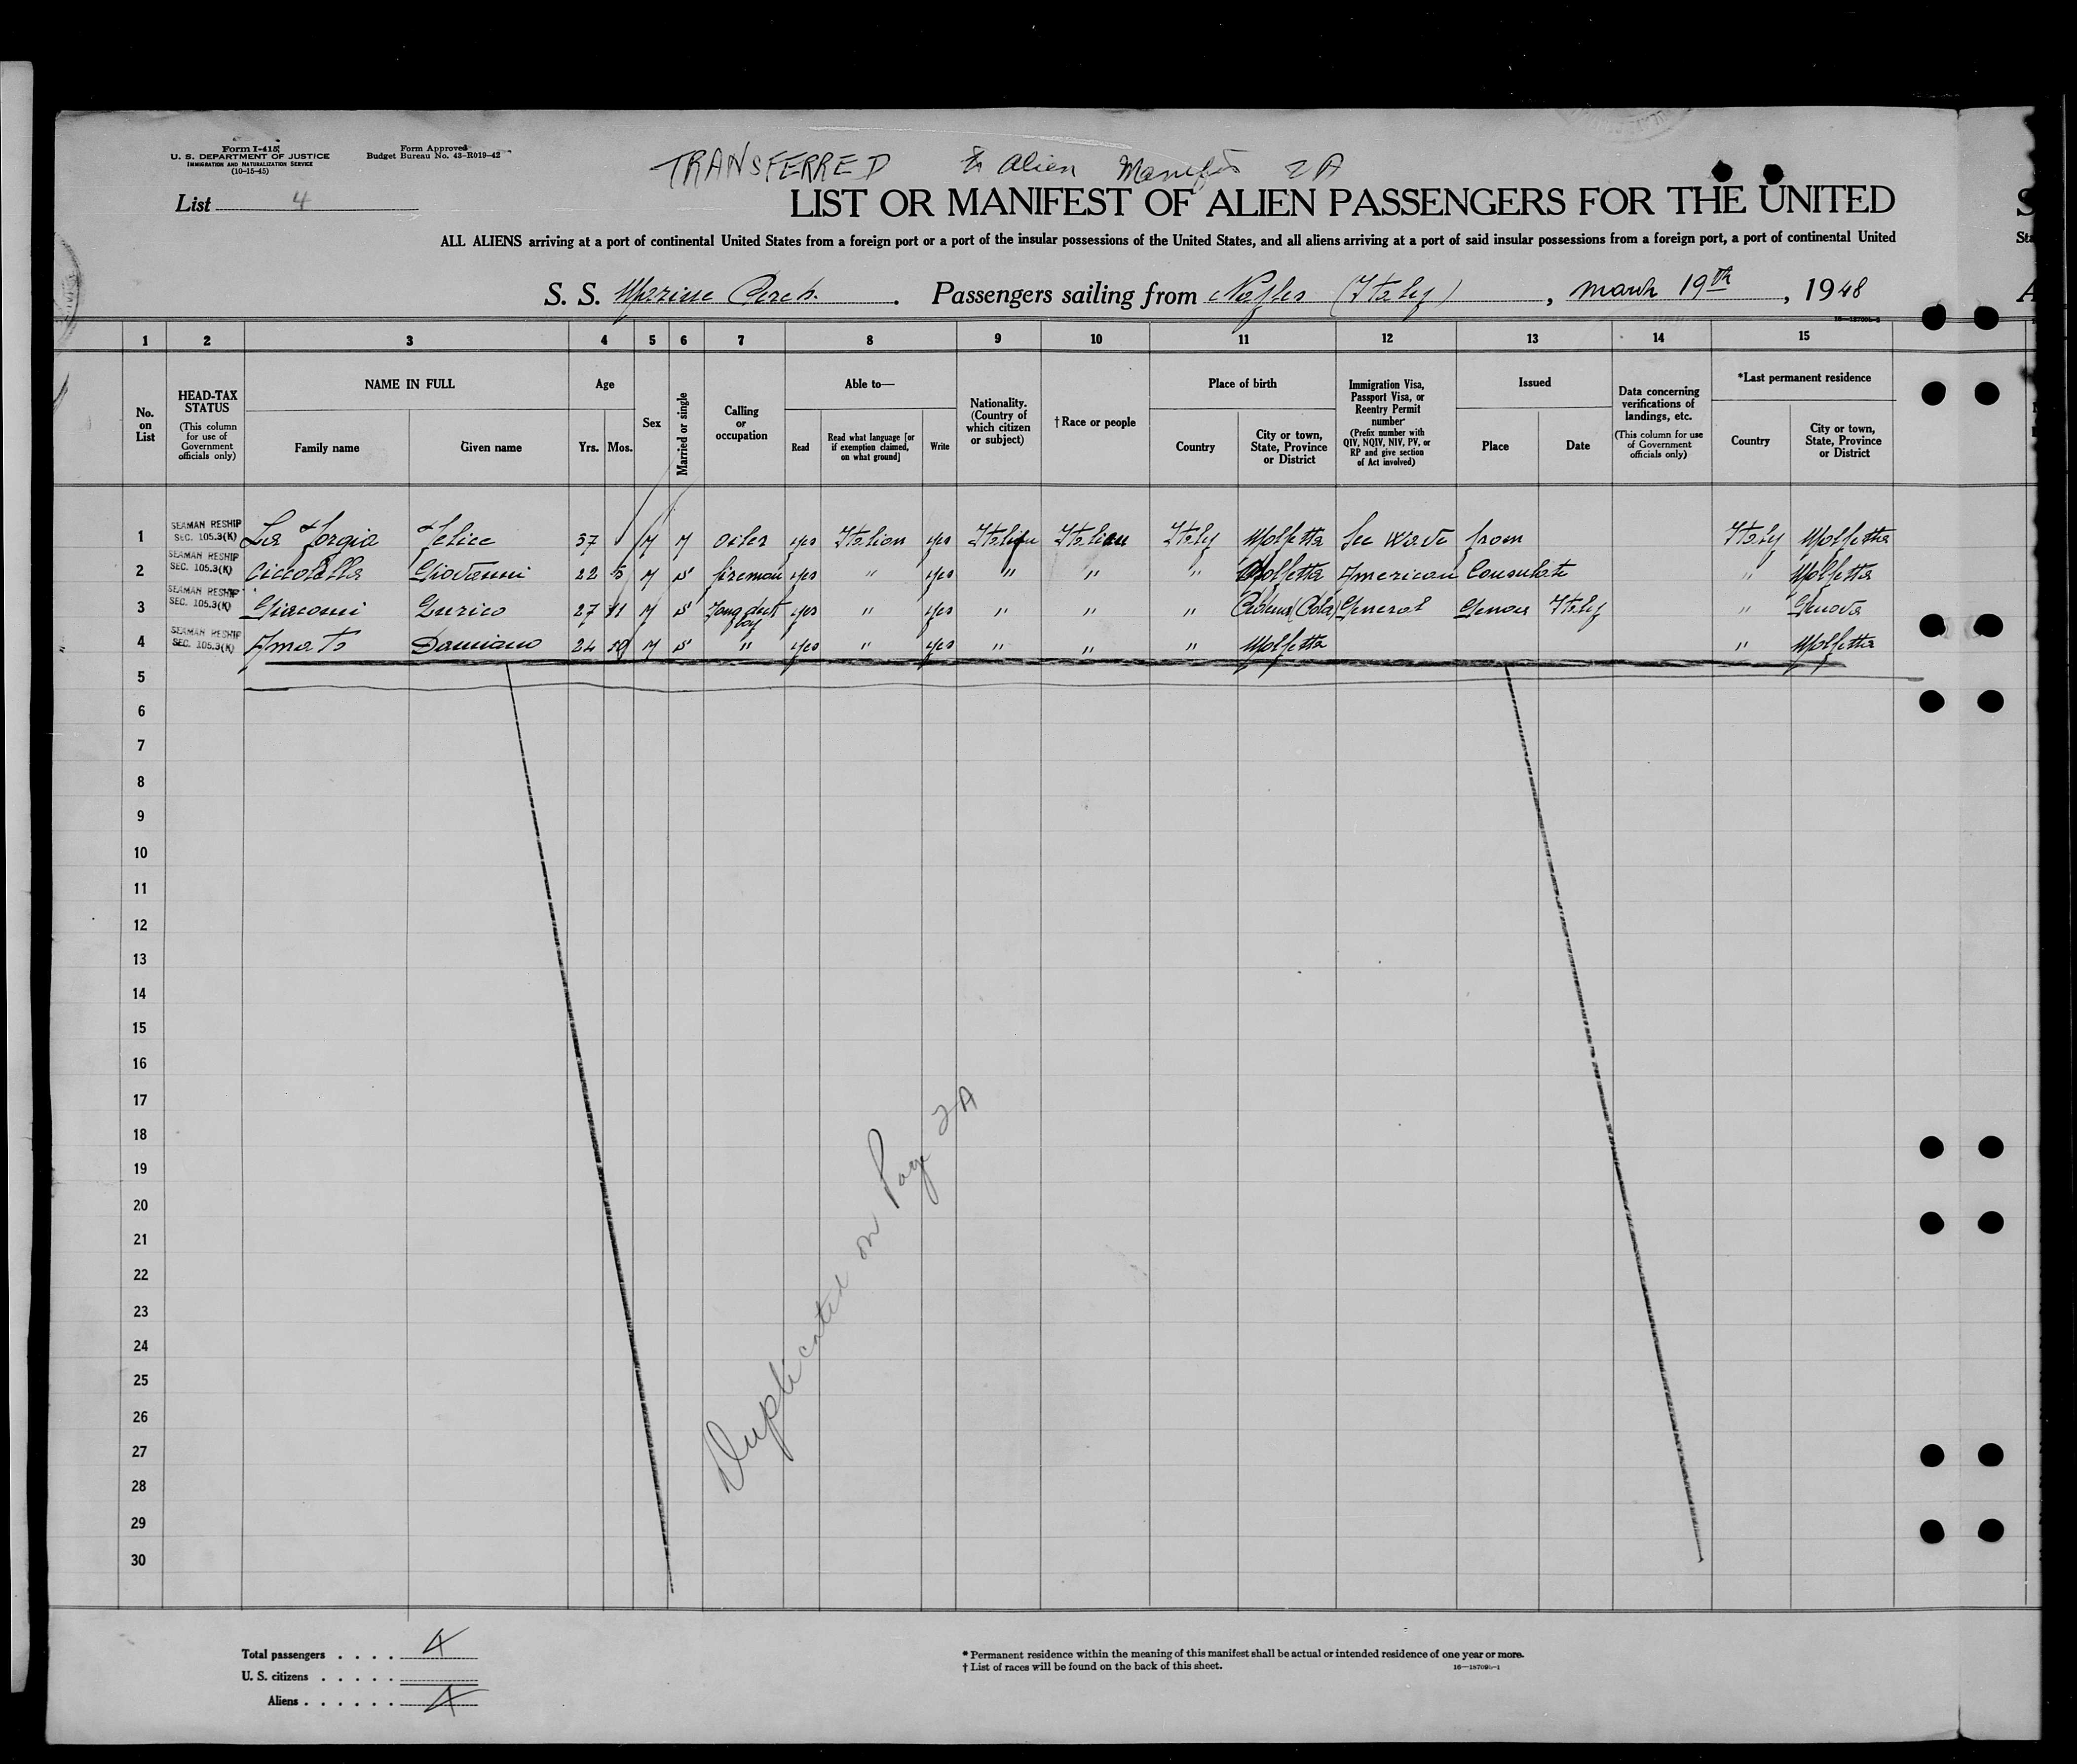 Form I-415
U. S. DEPARTMENT OF JUSTICE
IMMIGRATION AND NATURALIZATION SERVICE
(10-15-45)
Form Approved
Budget Bureau No. 43-R019-42
TRANSFERRED to Alien Manifest 2A
List 4
LIST OR MANIFEST OF ALIEN PASSENGERS FOR THE UNITED
ALL ALIENS arriving at a port of continental United States from a foreign port or a port of the insular possessions of the United States, and all aliens arriving at a port of said insular possessions from a foreign port, a port of continental United
S. S. Marine Perch. Passengers sailing from Naples (Italy), March 19th, 1948
1 2 3 4 5 6 7 8 9 10 11 12 13 14 15
No. on List
HEAD-TAX STATUS
(This column for use of Government officials only)
NAME IN FULL
Family name
Given name
Age
Yrs.
Mos.
Sex
Married or single
Calling or occupation
Able to—
Read
Read what language [or if exemption claimed, on what ground]
Write
Nationality. (Country of which citizen or subject)
†Race or people
Place of birth
Country
City or town, State, Province or District
Immigration Visa, Passport Visa, or Reentry Permit number
(Prefix number with QIV, NQIV, NIV, PV, or RP and give section of Act involved)
Issued
Place
Date
Data concerning verifications of landings, etc.
(This column for use of Government officials only)
*Last permanent residence
Country
City or town, State, Province or District
1 SEAMAN RESHIP SEC. 105.3(K) La Forgia Felice 37 M M oiler yes Italian yes Italian Italian Italy Molfetta See from Italy Molfetta
2 SEAMAN RESHIP SEC. 105.3(K) Ciccolella Giovanni 22 5 M S fireman yes " yes " " " Molfetta American Consulate " Molfetta
3 SEAMAN RESHIP SEC. 105.3(K) Giacomi Enrico 27 11 M S boy yes " yes " " " General Genoa Italy " Genova
4 SEAMAN RESHIP SEC. 105.3(K) Amato Damiano 24 M S " yes " yes " " " Molfetta " Molfetta
5
6
7
8
9
10
11
12
13
14
15
16
17
18
19
20
21
22
23
24
25
26
27
28
29
30
Duplicated on Page 2A
Total passengers . . . . 4
U. S. citizens . . . . .
Aliens . . . . . . 4
* Permanent residence within the meaning of this manifest shall be actual or intended residence of one year or more.
† List of races will be found on the back of this sheet.